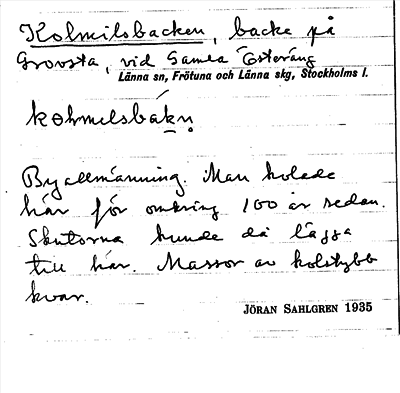 Kolmilsbacken, backe på
Grovsta, vid Gamla Österäng
Länna sn, Frötuna och Länna skg, Stockholms l.
kolmilsbakn
Byallmänning. Man kolade
här för omkring 100 år sedan.
Skutorna kunde då lägga
till här. Massor av kolstybb
kvar.
JÖRAN SAHLGREN 1935